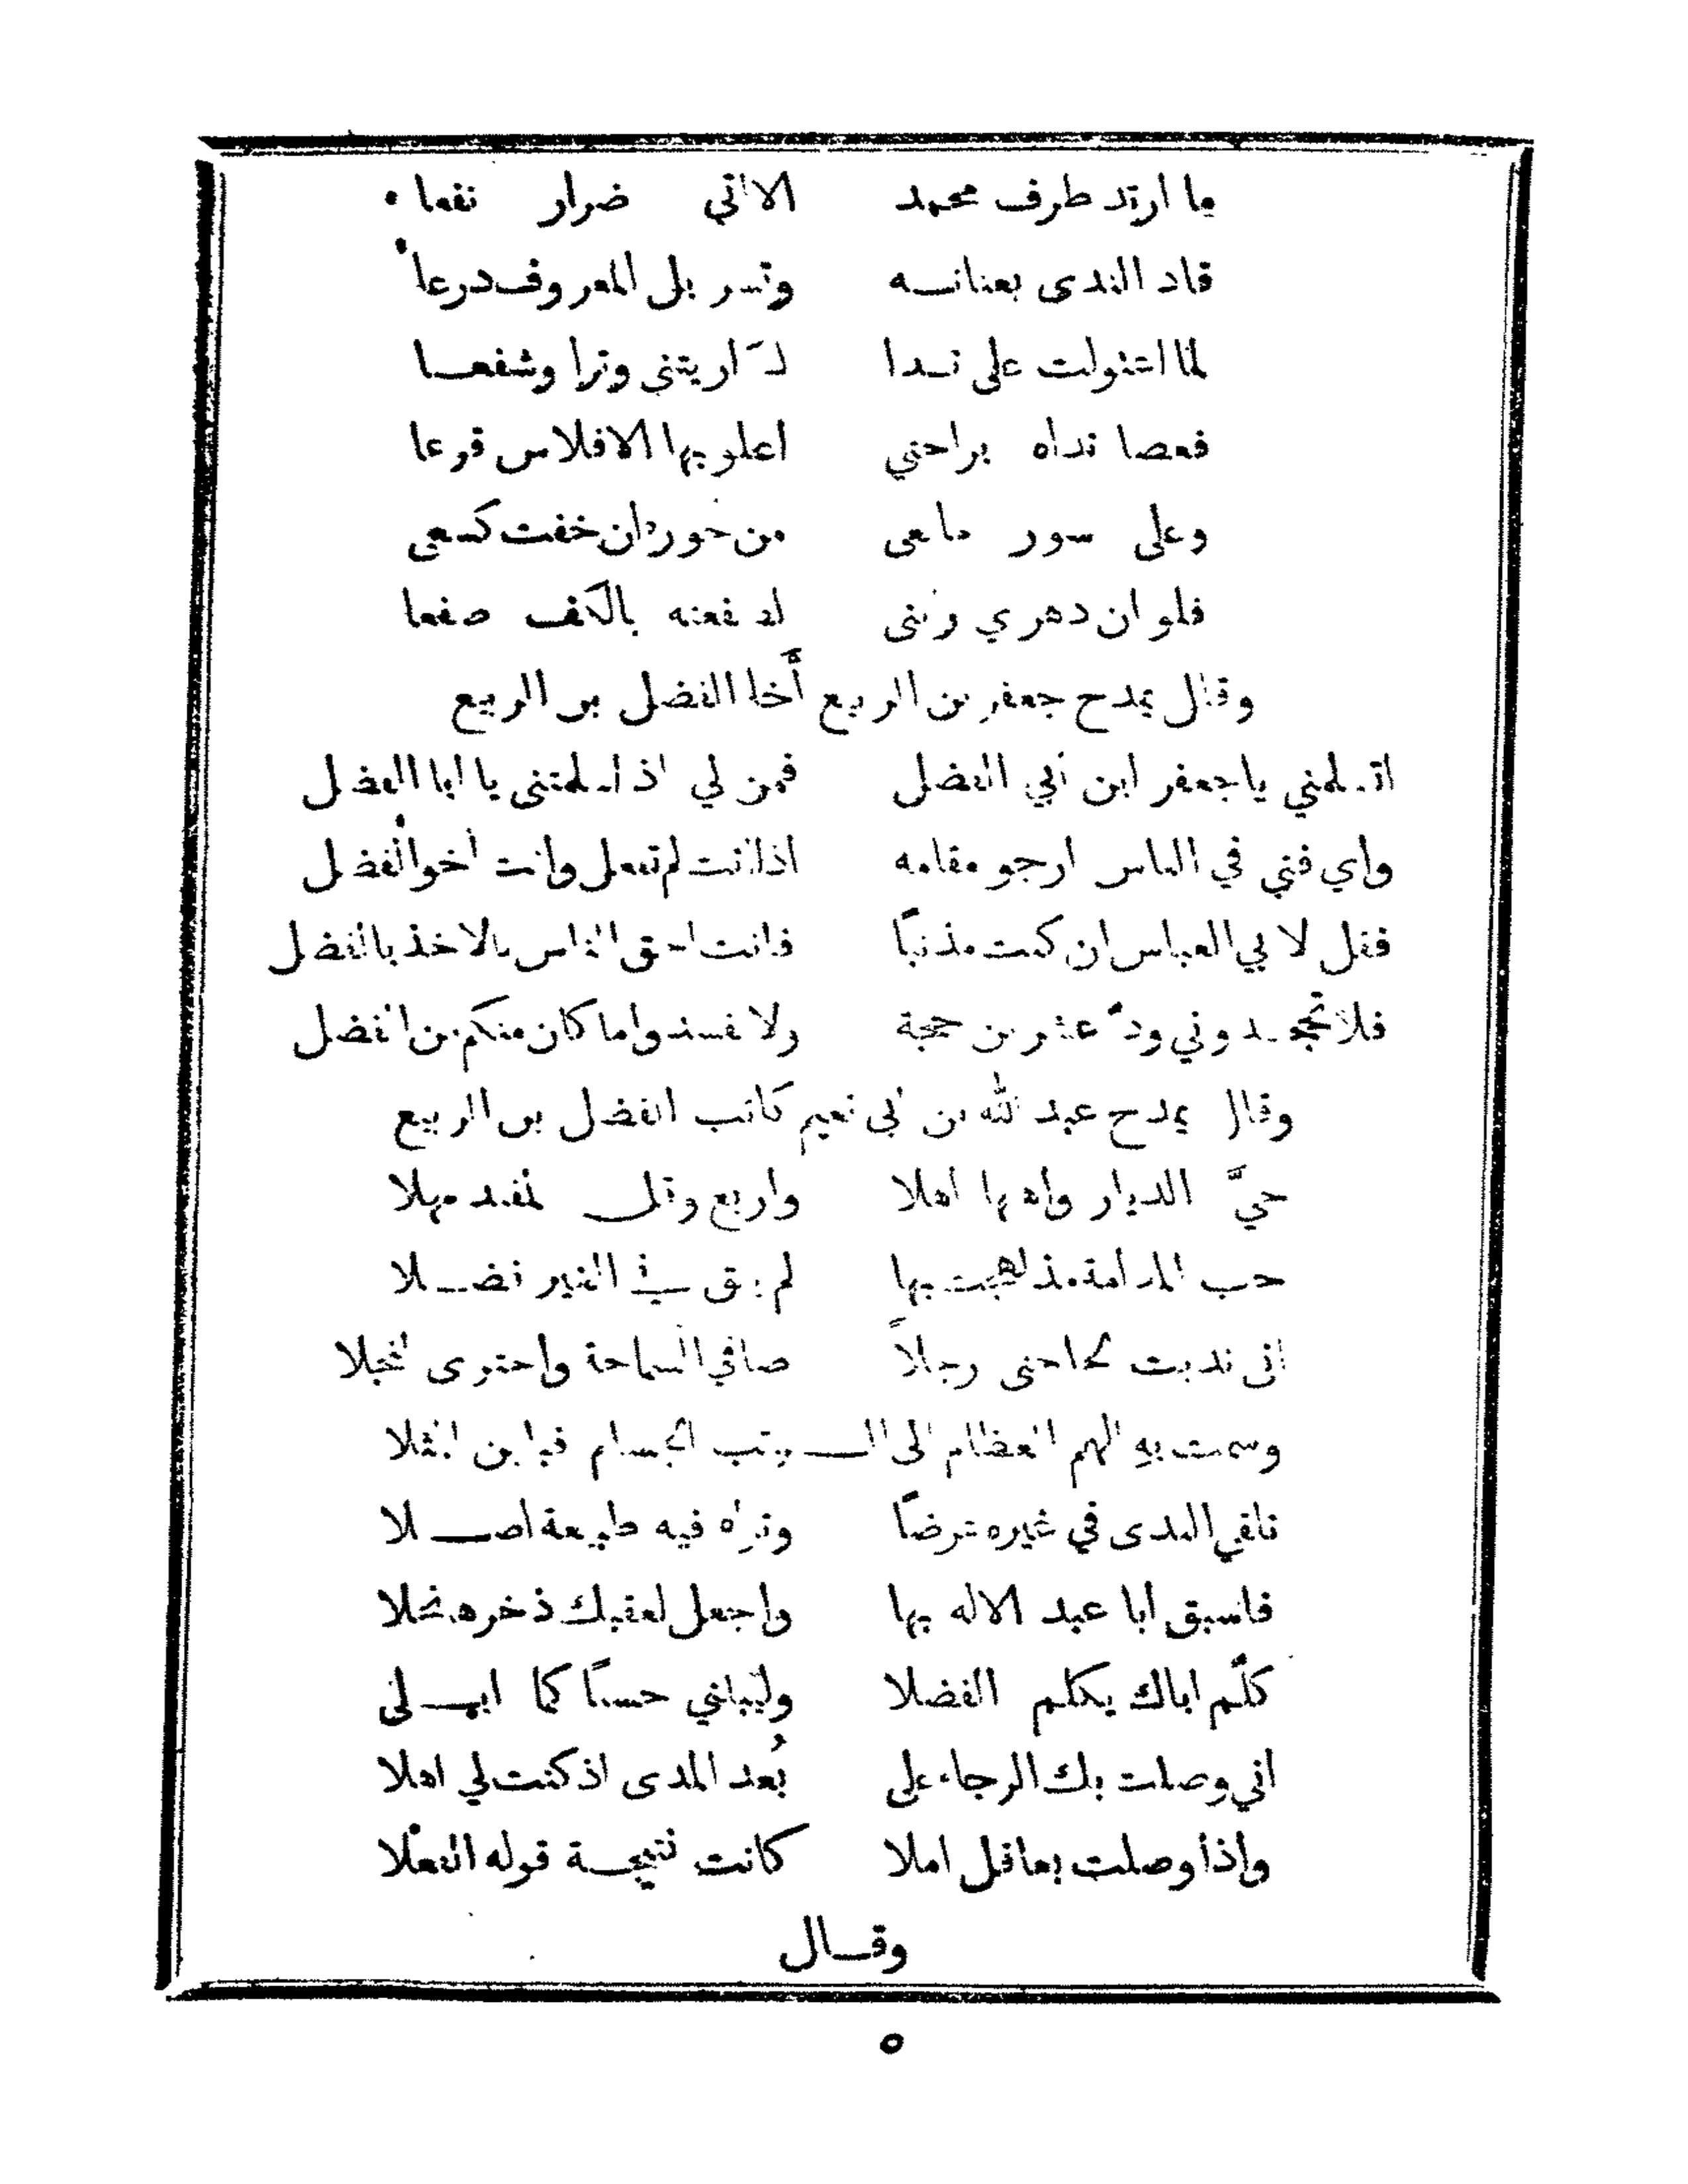 ما ارتد طرف محمد الا اتى ضرار نفعا
قاد الندى بعنانه وتسربل المعروف درعا
لما اعتولت على نداه اريتنى وترا وشفعا
فعصا نداه براحتي اعلو بها الافلاس قرعا
وعلى سور مانعى من جوده ان خفت كسعى
فلو ان دهري رابنى لصفعته بالكف صفعا
وقال يمدح جعفر بن الربيع أخا الفضل بن الربيع
اتسلمني يا جعفر ابن أبي الفضل فمن لي اذ اسلمتنى يا ابا الفضل
واي فتي في الناس ارجو مقامه اذا انت لم تفعل وانت أخو الفضل
فقل لابي العباس ان كنت مذنباً فانت احق الناس بالاخذ بالفضل
فلا تجحدوني ودّ عشرين حجة ولا تفسدوا ما كان منكم من الفضل
وقال يمدح عبد الله بن ابى نعيم كاتب الفضل بن الربيع
حيّ الديار واهلها اهلا واربع وقل لمفند مهلا
حب المدامة مذ لهجت بها لم يبق في الغير فضلا
انى ندبت لحاجتى رجلاً صافي السماحة واحتوى النجلا
وسمت به الهم العظام الى الرتب الجسام فباين المثلا
تلقي الندى في غيره عرضاً وتراه فيه طبيعة اصلا
فاسبق ابا عبد الاله بها واجعل لعقبك ذخرها نحلا
كلّم اباك يكلم الفضلا وليبلني حسناً كما ابلى
اني وصلت بك الرجاء على بُعد المدى اذ كنت لي اهلا
واذا وصلت بعاقل املا كانت نتيجة قوله الفعلا
وقال
٥